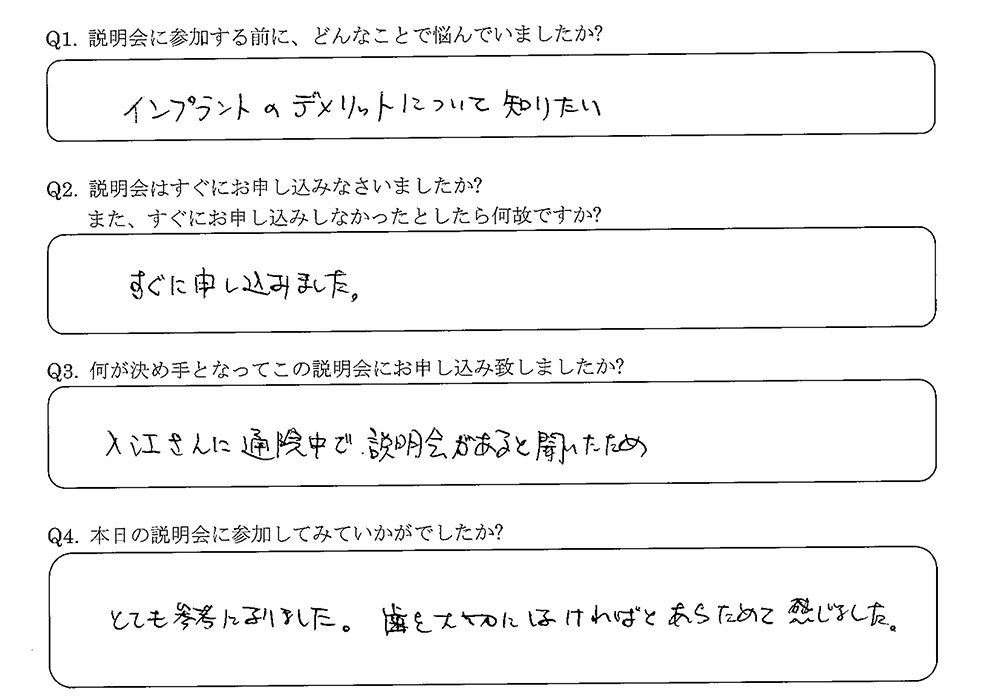 Q1. 説明会に参加する前に、どんなことで悩んでいましたか?
インプラントのデメリットについて知りたい
Q2. 説明会はすぐにお申し込みなさいましたか?
また、すぐにお申し込みしなかったとしたら何故ですか?
すぐに申し込みました。
Q3. 何が決め手となってこの説明会にお申し込み致しましたか?
入江さんに通院中で説明会があると聞いたため
Q4. 本日の説明会に参加してみていかがでしたか?
とても参考になりました。歯を大切にしなければとあらためて感じました。